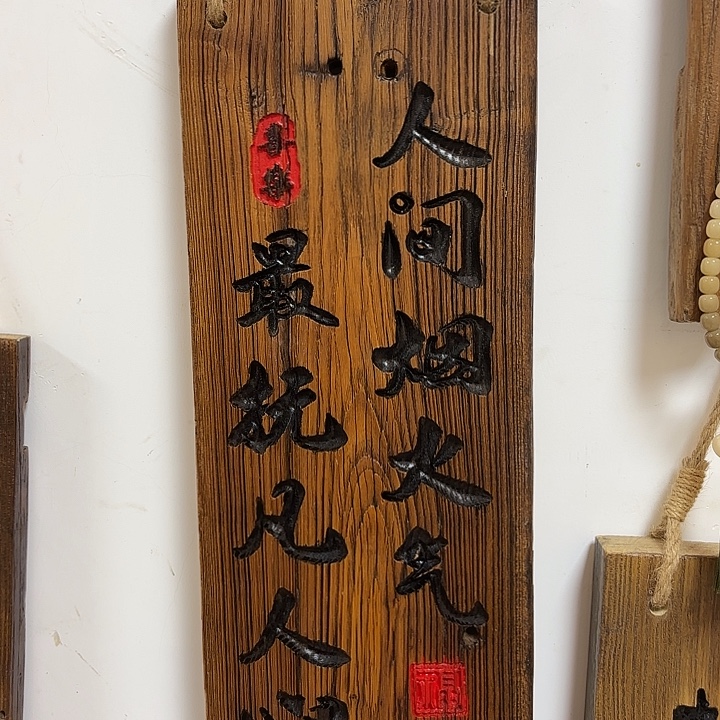 人间烟火气
最抚凡人
喜樂